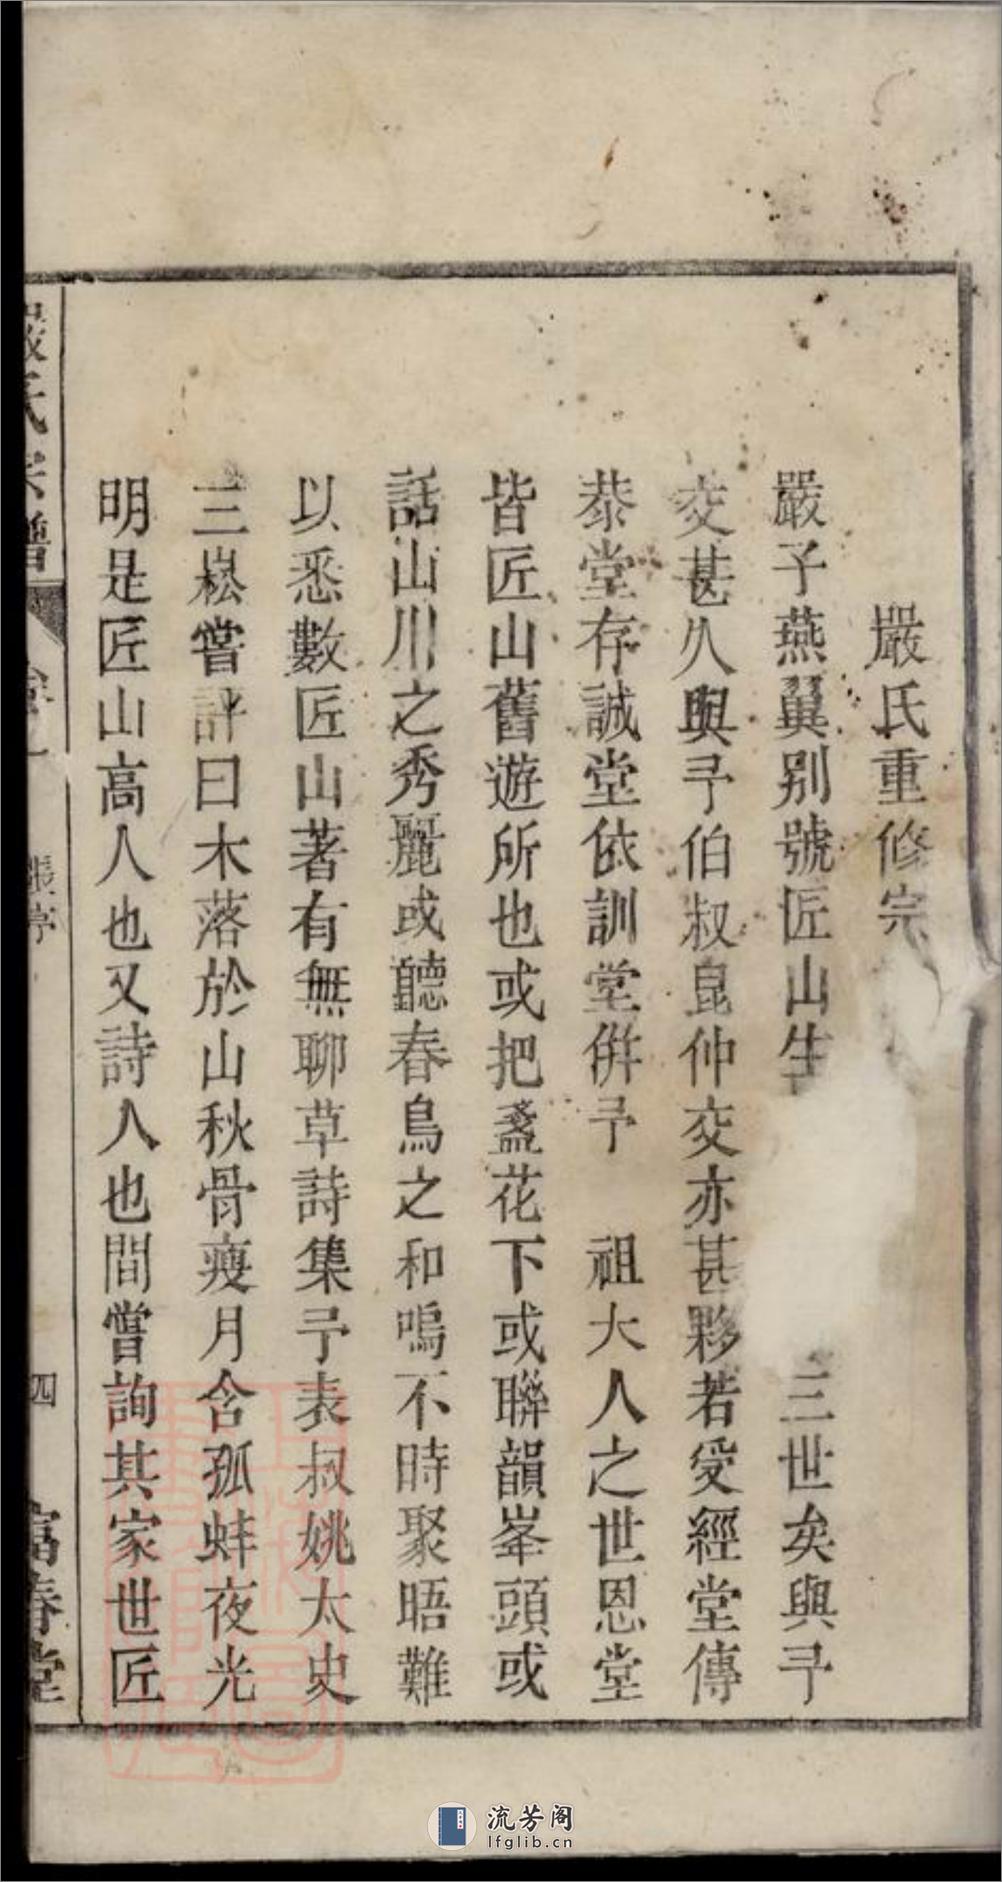 嚴氏重修宗
嚴予燕翼别號匠山生三世矣與予
交甚久與予伯叔昆仲交亦甚夥若受經堂傳
恭堂存誠堂依訓堂併予　祖大人之世恩堂
皆匠山舊遊所也或把盞花下或聯韻峯頭或
話山川之秀麗或聽春鳥之和鳴不時聚晤難
以悉數匠山著有無聊草詩集予表叔姚太史
三崧嘗評曰木落於山秋骨瘦月含孤蚌夜光
明是匠山高人也又詩人也間嘗詢其家世匠
嚴氏宗譜
四
富春堂
流芳阁
lfglib.cn